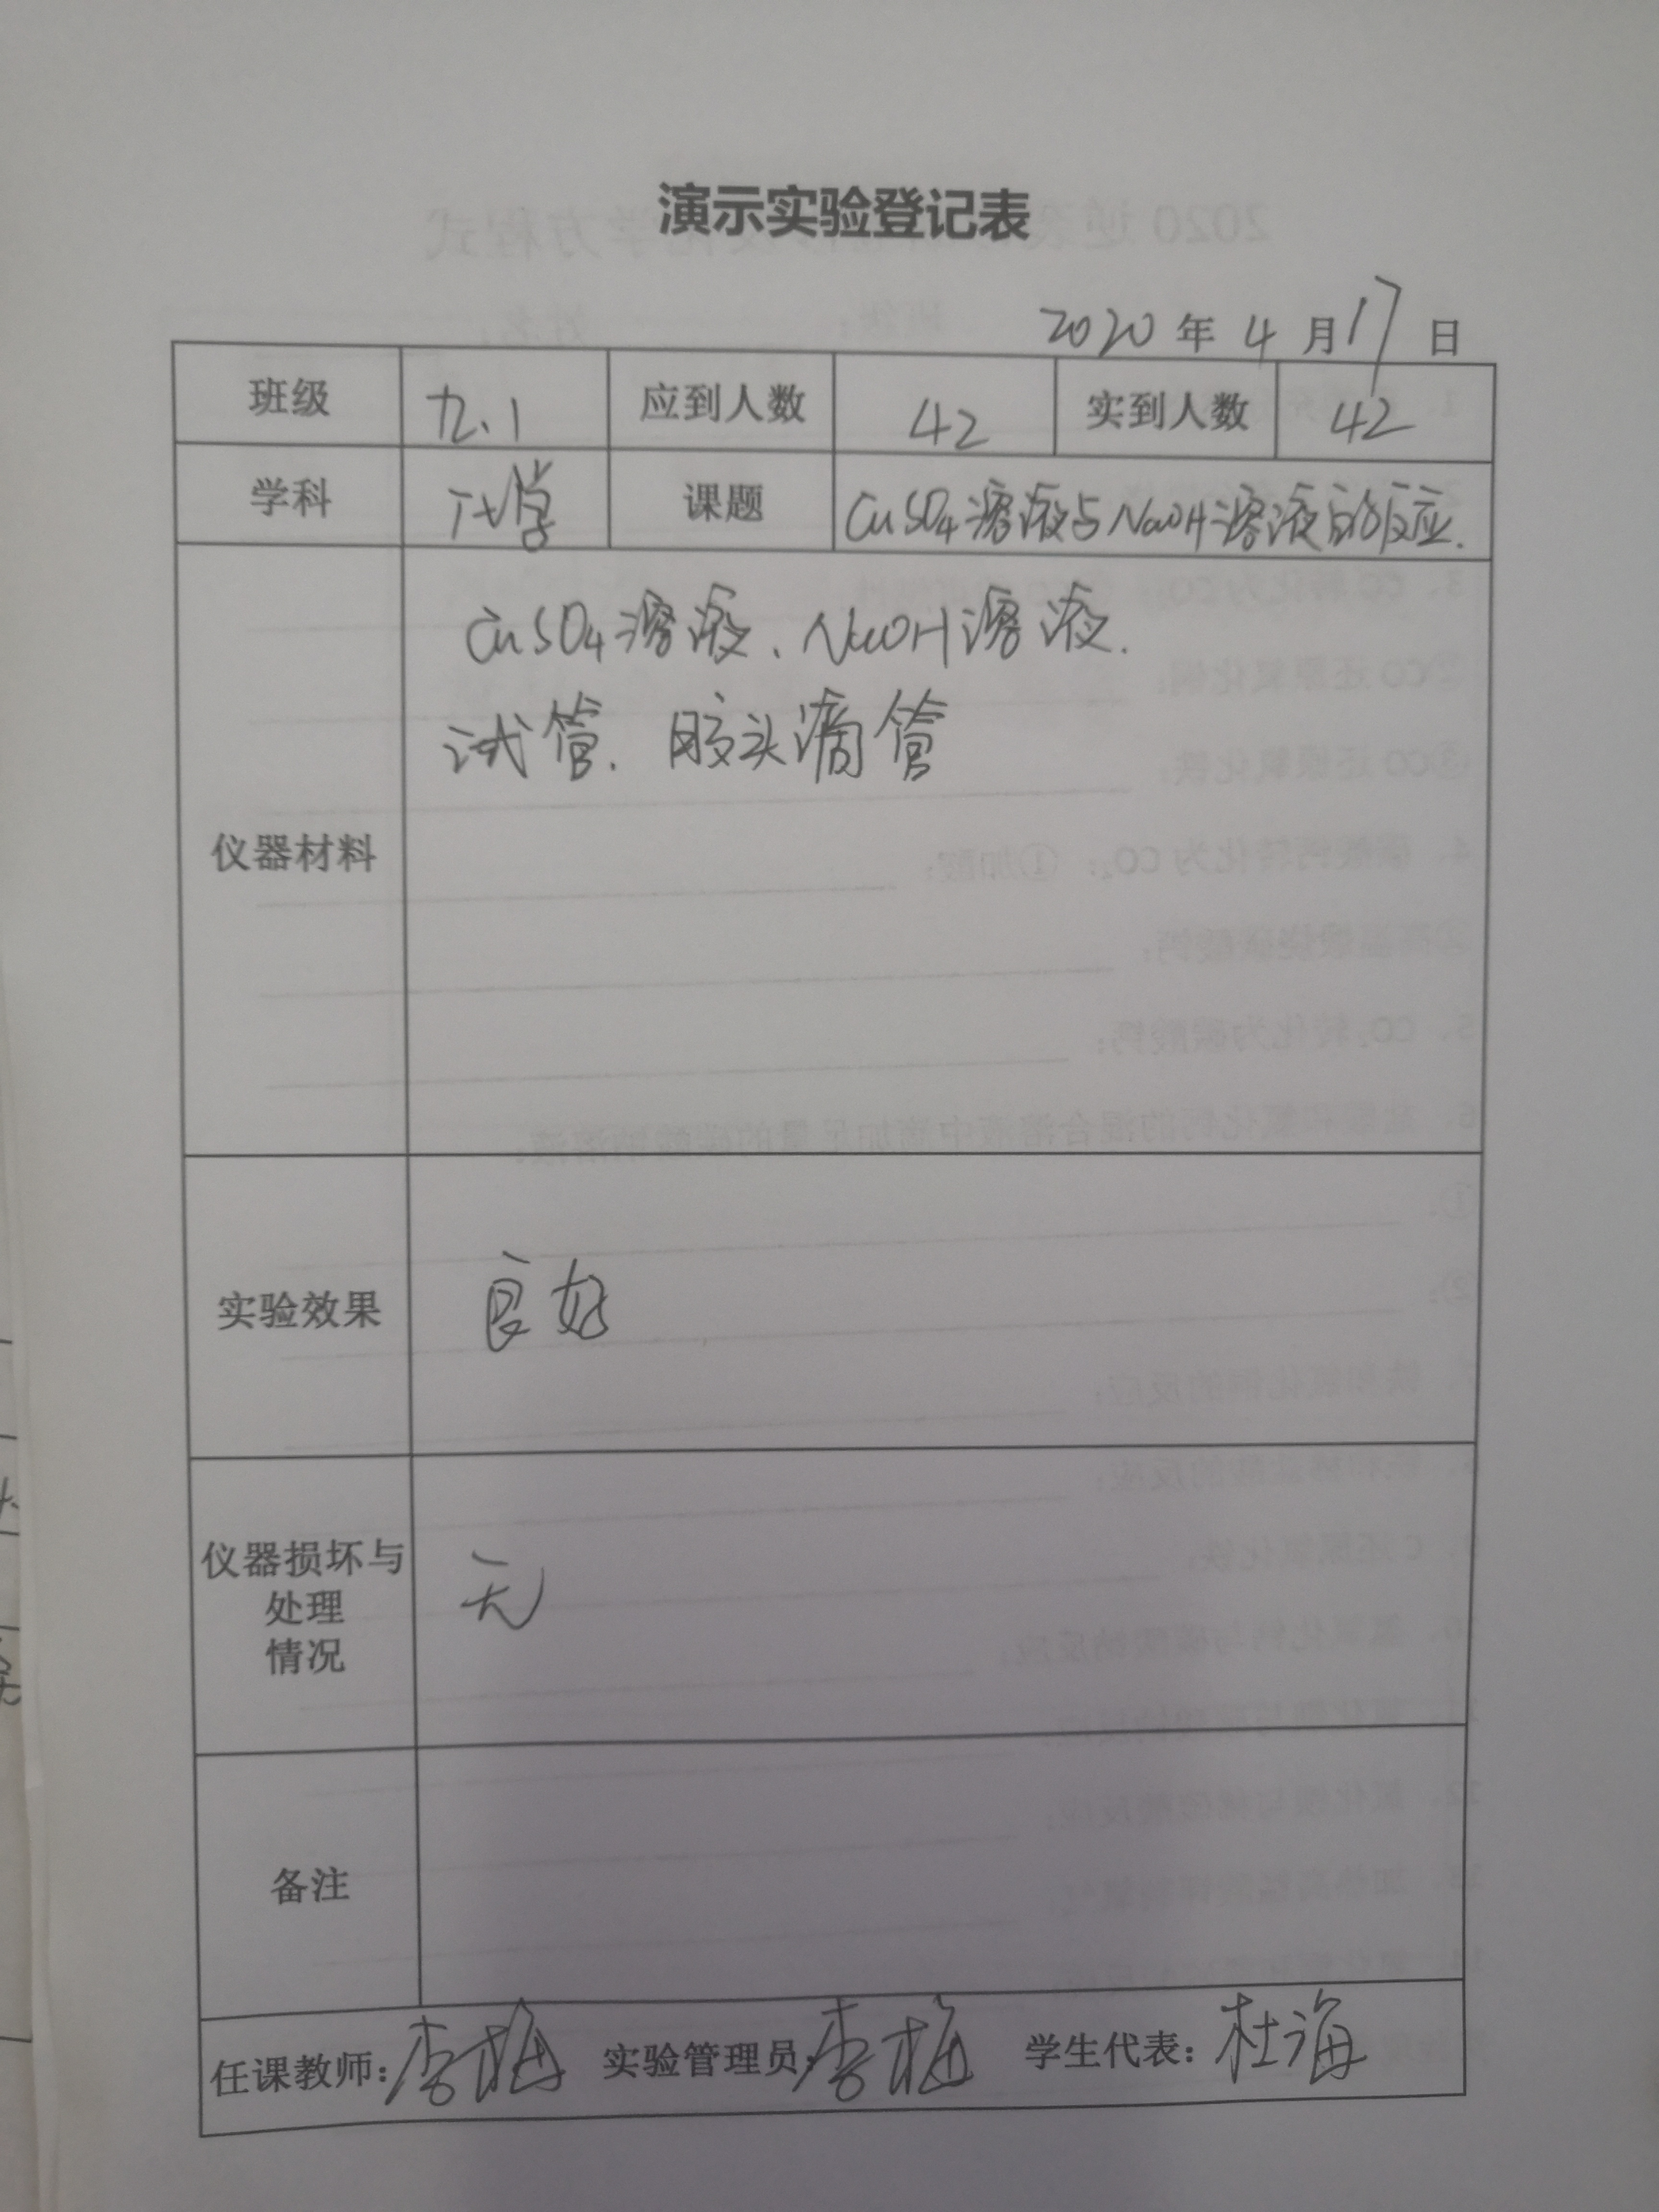 演示实验登记表
2020 年 4 月 17 日
班级 九.1 应到人数 42 实到人数 42
学科 化学 课题 CuSO4溶液与NaOH溶液的反应.
仪器材料
CuSO4溶液、NaOH溶液.
试管. 胶头滴管
实验效果 良好
仪器损坏与
处理
情况
无
备注
任课教师: 李梅 实验管理员: 李梅 学生代表: 杜海